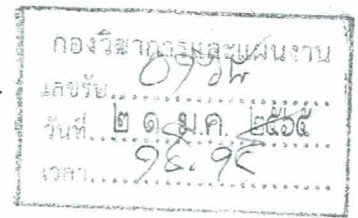 กองวิชาการและแผนงาน
เลขรับ
วันที่ ๒๑ ม.ค. ๒๕๖๕
เวลา